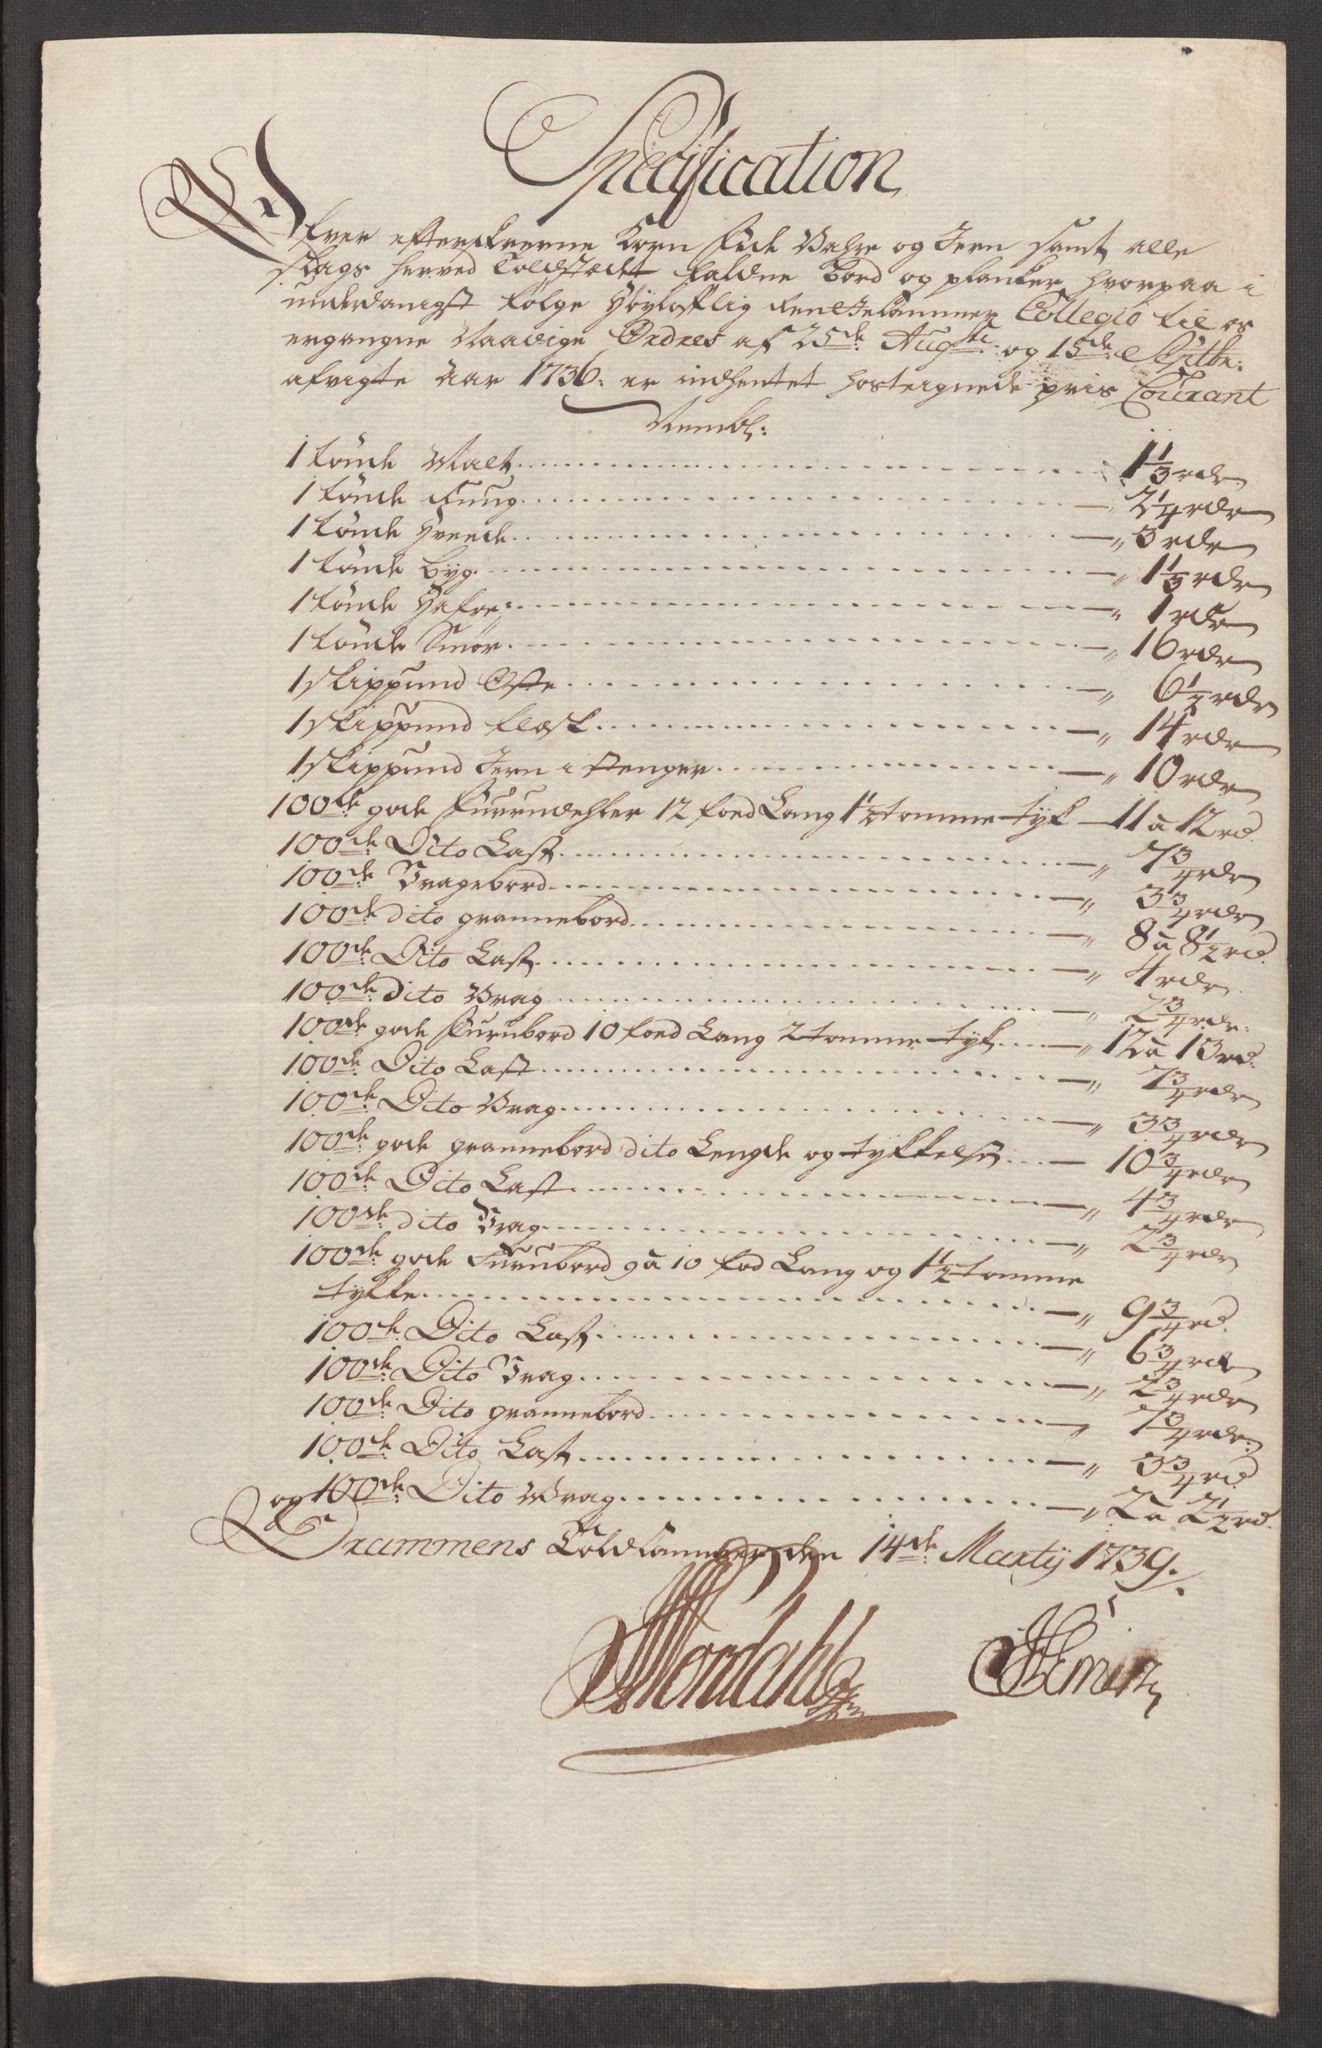 Specification
Ofver efterskrevne Korn Fede Vahre og Jern samt alle
slags herved Toldstædet faldne Bord og planker, hvorpaa i
underdanigst følge Høylofflig Rentekammer Collegio til os
ergangne Naadige Ordres af 25de Augsti: og 15de Septbr:
afvigte Aar 1736: er indhentet hostegnede pris Courant
Nembl:
1 tønde Malt 1 1/3 rdr
1 tønde Rug 2 1/4 rdr
1 tønde Hvede 3 rdr
1 tønde Byg 1 1/3 rdr
1 tønde Hafre 1 rdr
1 tønde Smør 16 rdr
1 skippund Oste 6 1/2 rdr
1 skippund Flesk 14 rdr
1 skippund Jern i stenger 10 rdr
100de gode Furrudehler 12 foed Lang 1 1/2 tomme tyk 11 a 12 rd.
100de Dito Last 7 3/4 rdr
100de Vragebord 3 3/4 rdr
100de dito grannebord 8 a 8 1/2 rd.
100de Dito Last 4 rdr
100de dito Vrag 2 3/4 rdr:
100de gode Furubord 10 foed Lang 2 tomme tyk 12 a 13 rd.
100de Dito Last 7 3/4 rdr
100de Dito Vrag 3 3/4 rdr
100de gode grannebord dito Lengde og tykkelse 10 3/4 rdr
100de Dito Last 4 3/4 rdr
100de dito Vrag 2 3/4 rdr
100de gode Furubord 9 a 10 fod Lang og 1 1/2 tomme
tykke 9 3/4 rd.
100de Dito Last 6 3/4 rdr
100de Dito Vrag 2 3/4 rdr
100de Dito grannebord 7 3/4 rdr:
100de Dito Last 3 3/4 rd
og 100de Dito Vrag 2 a 2 1/2 rd.
Drammens Toldkammer den 14de Martij 1739.